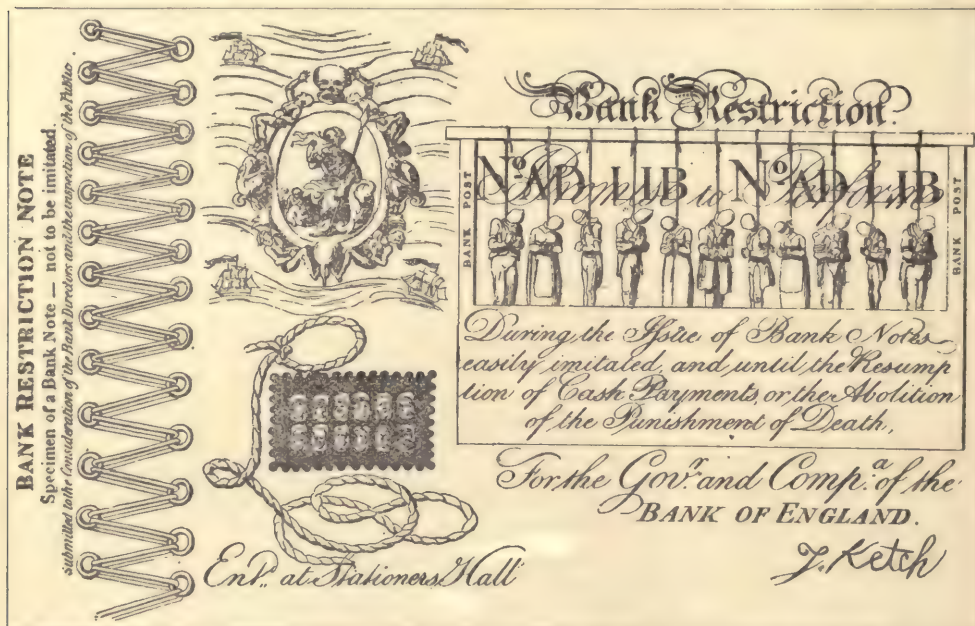 BANK RESTRICTION NOTE
Specimen of a Bank Note — not to be imitated.
Submitted to the Consideration of the Bank Directors and the inspection of the Public
Bank Restriction.
BANK POST
No. AD LIB No. AD LIB
I Promise to Perform
BANK POST
During the Issue of Bank Notes
easily imitated, and until the Resump
tion of Cash Payments, or the Abolition
of the Punishment of Death,
For the Govr. and Compa. of the
BANK OF ENGLAND.
J. Ketch
Entd. at Stationers Hall